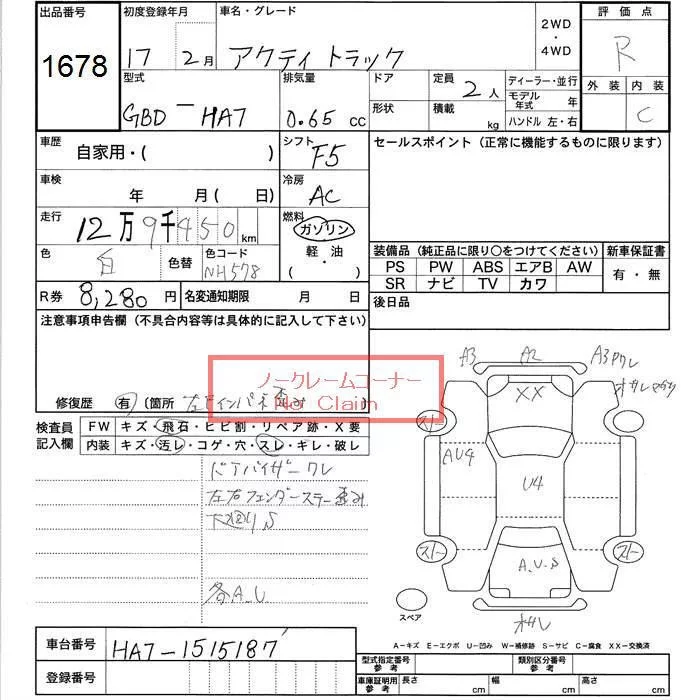 出品番号 初度登録年月 車名・グレード 2WD・4WD 評価点
1678 17 2月 アクティ トラック R
型式 排気量 ドア 定員 2人 ディーラー・並行 外装 内装
GBD-HA7 0.65 cc 形状 積載 kg モデル年式 年 C
ハンドル 左・右
車歴 自家用・( ) シフト F5 セールスポイント (正常に機能するものに限ります)
車検 年 月 ( 日) 冷房 AC
走行 12万9千450km 燃料 ガソリン
軽・油
( ・ )
色 白 色替 色コード NH578
装備品 (純正品に限り○をつけてください) 新車保証書
PS PW ABS エアB AW 有・無
SR ナビ TV カワ
R券 8,280円 名変通知期限 月 日 後日品
注意事項申告欄 (不具合内容等は具体的に記入して下さい)
ノークレームコーナー
No Claim
修復歴 有 〔箇所
検査員記入欄 FW キズ・飛石・ヒビ割・リペア跡・X要
内装 キズ・汚レ・コゲ・穴・スレ・キレ・破レ
ドアバイザーワレ
左右フェンダーステー歪み
下廻りS
各A.U.
A3 A2 A3ワレ
XX
AU4
U4
A.U.S
スチー スチー
スペア
A-キズ E-エクボ U-凹み W-補修跡 S-サビ C-腐食 XX-交換済
車台番号 HA7-1515187
登録番号
型式指定番号 参考 類別区分番号 参考
車庫証明用 参考 長さ cm 幅 cm 高さ cm